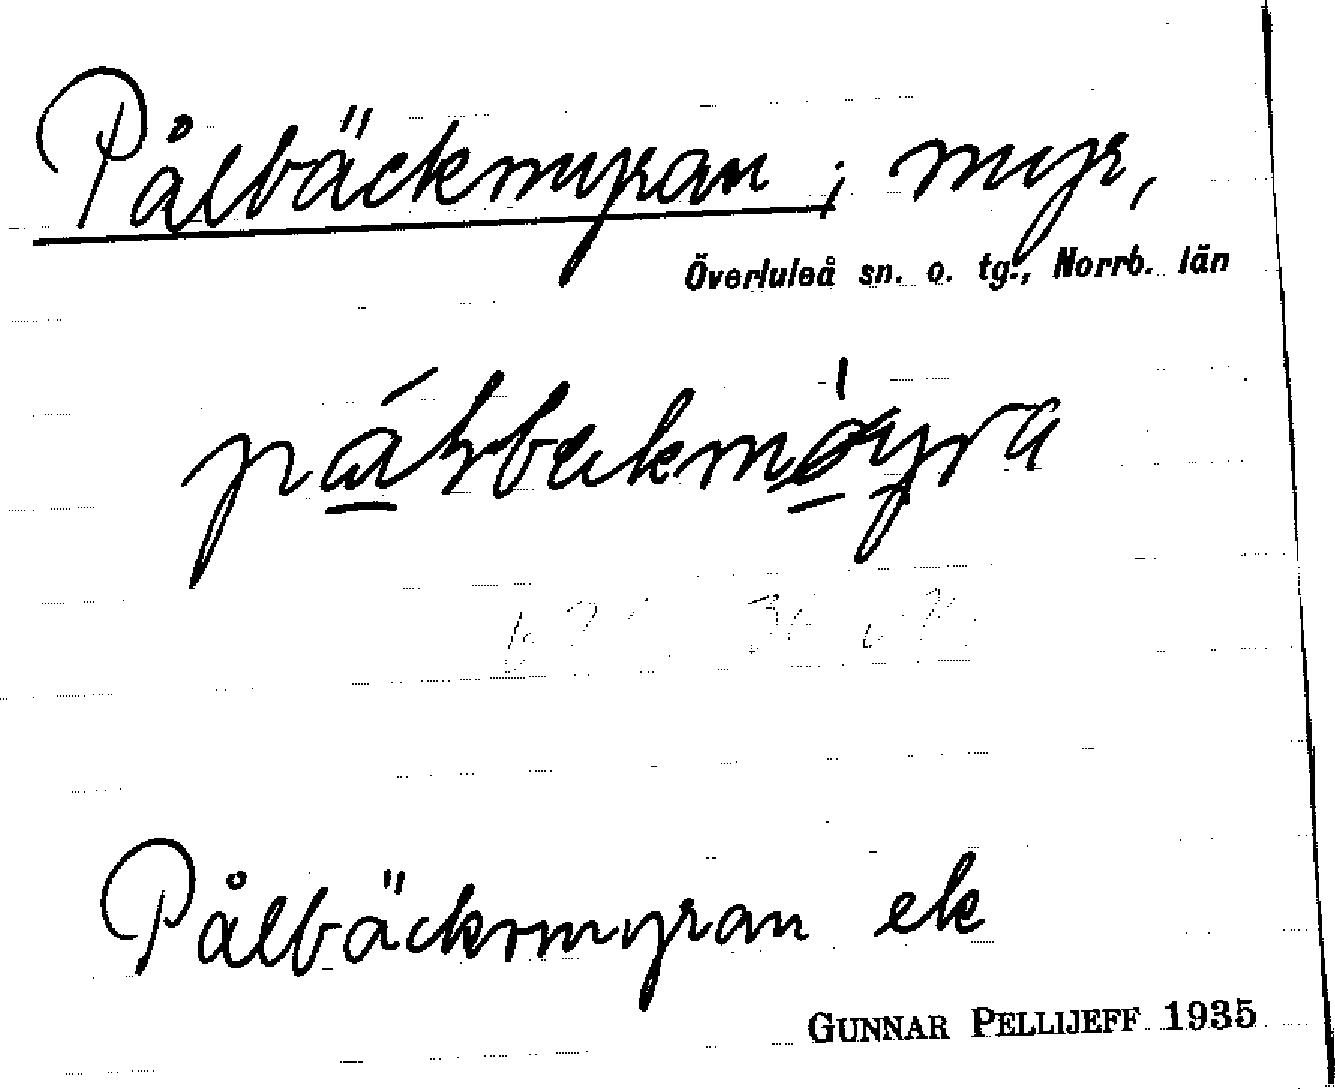 Pålbäckmyran; myr,
Överluleå sn. o. tg., Norrb. län
Pålbäcksmyran ek
GUNNAR PELLIJEFF 1935